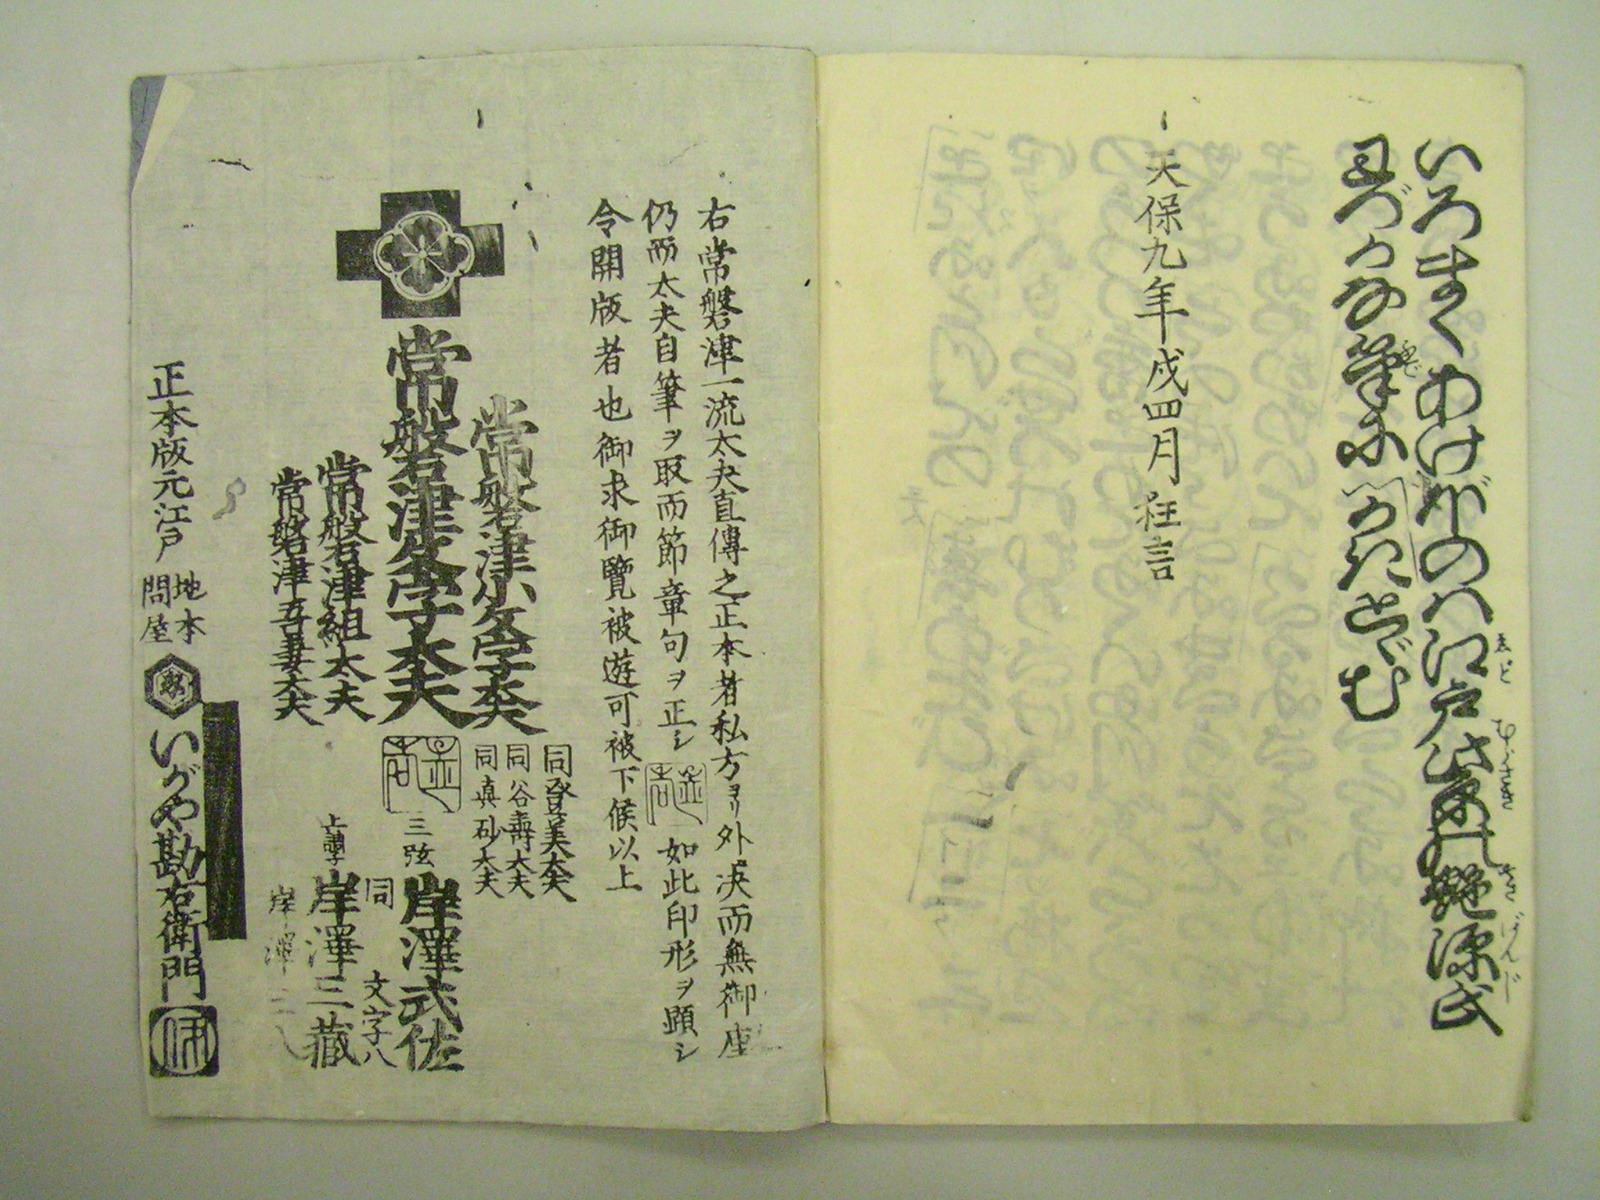 いろまくあけぼのハ江戸紫の艶源氏
忍づかな筆にかきとゞむ
天保九年戌四月狂言
右常磐津一流太夫直傳之正本者私方ヨリ外決而無御座
仍而太夫自筆ヲ取而節章句ヲ正シ 如此印形ヲ顕シ
令開版者也御求御覧被遊可被下候以上
常磐津小文字太夫
同登美太夫
同谷壽太夫
同真砂太夫
常磐津文字太夫
三弦 岸澤式佐
同 文字八
常磐津組太夫
上調子 岸澤三蔵
常磐津吾妻太夫
岸澤三八
正本版元江戸 地本問屋 いがや勘右衛門